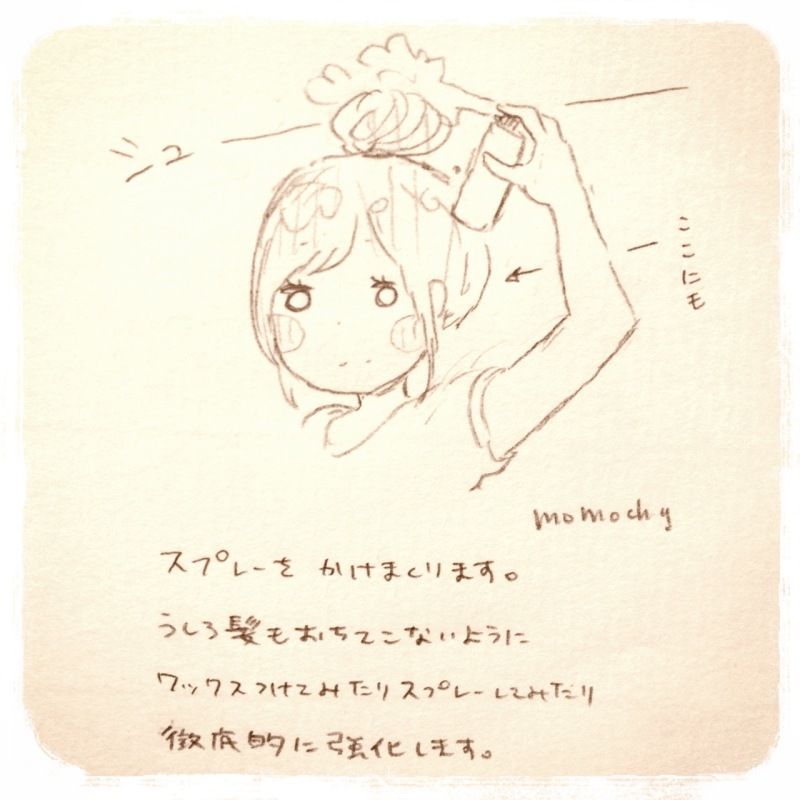 シュー
ここにも
momochy
スプレーを かけまくります。
うしろ髪もおちてこないように
ワックスつけてみたりスプレーしてみたり
徹底的に強化します。